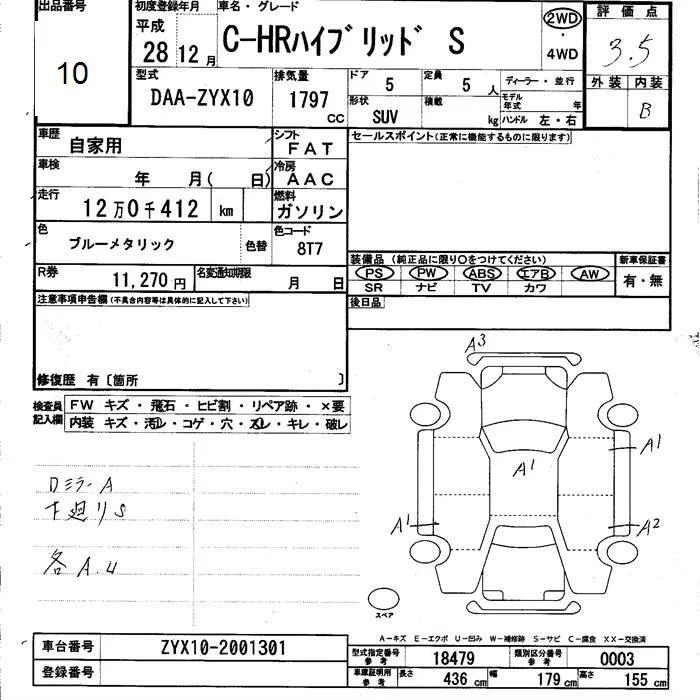 出品番号 初度登録年月 車名・グレード 評価点
10 平成 28 12月 C-HRハイブリッド S 2WD・4WD 3.5
型式 排気量 ドア 定員 ディーラー・並行 外装 内装
DAA-ZYX10 1797 CC 5 5人 モデル年式 年 B
形状 SUV 積載 kg ハンドル 左・右
車歴 自家用 シフト FAT セールスポイント(正常に機能するものに限ります)
車検 年 月( 日) 冷房 AAC
走行 12万0千412 km 燃料 ガソリン
色 ブルーメタリック 色替 色コード 8T7
装備品(純正品に限り○をつけてください) 新車保証書
PS PW ABS エアB AW 有・無
SR ナビ TV カワ
R券 11,270円 名変通知期限 月 日
後日品
注意事項申告欄(不具合内容等は具体的に記入して下さい)
修復歴 有〔箇所 〕
検査員記入欄 FW キズ・飛石・ヒビ割・リペア跡・×要
内装 キズ・汚レ・コゲ・穴・スレ・キレ・破レ
A3
A1
A1
A1
A2
ロミラーA
下廻りS
各A.U
スペア
A−キズ E−エクボ U−凹み W−補修跡 S−サビ C−腐食 XX−交換済
車台番号 ZYX10-2001301 型式指定番号 参考 18479 類別区分番号 参考 0003
登録番号 車庫証明用 参考 長さ 436 cm 幅 179 cm 高さ 155 cm